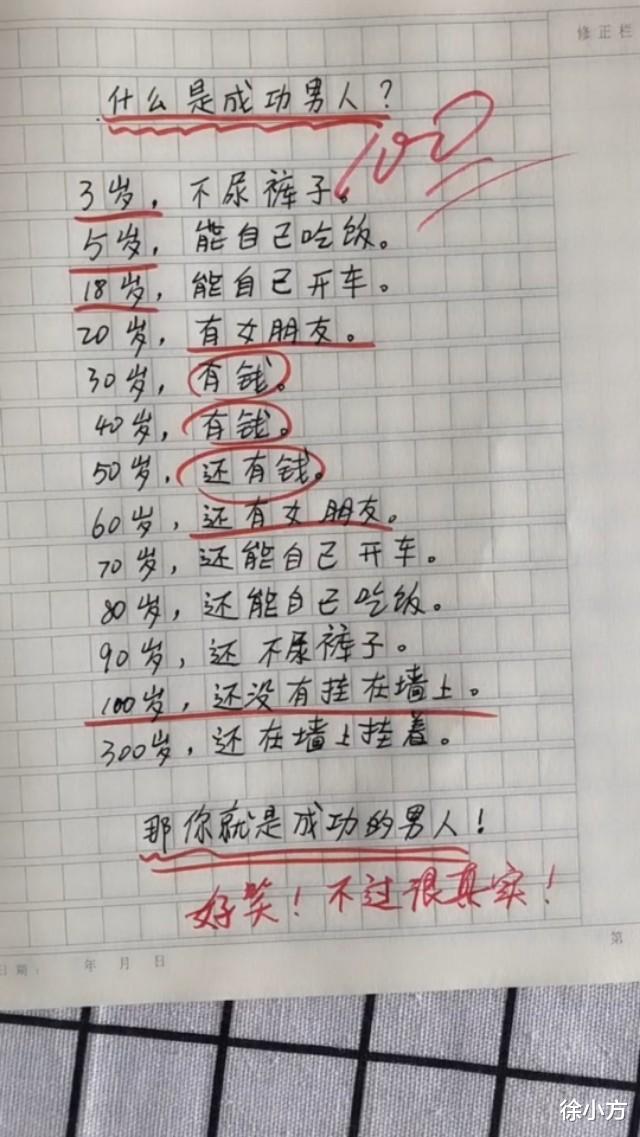 修正栏
什么是成功男人？
100
3岁，不尿裤子。
5岁，能自己吃饭。
18岁，能自己开车。
20岁，有女朋友。
30岁，有钱。
40岁，有钱。
50岁，还有钱。
60岁，还有女朋友。
70岁，还能自己开车。
80岁，还能自己吃饭。
90岁，还不尿裤子。
100岁，还没有挂在墙上。
300岁，还在墙上挂着。
那你就是成功的男人！
好笑！不过很真实！
第
日期： 年 月 日
徐小方